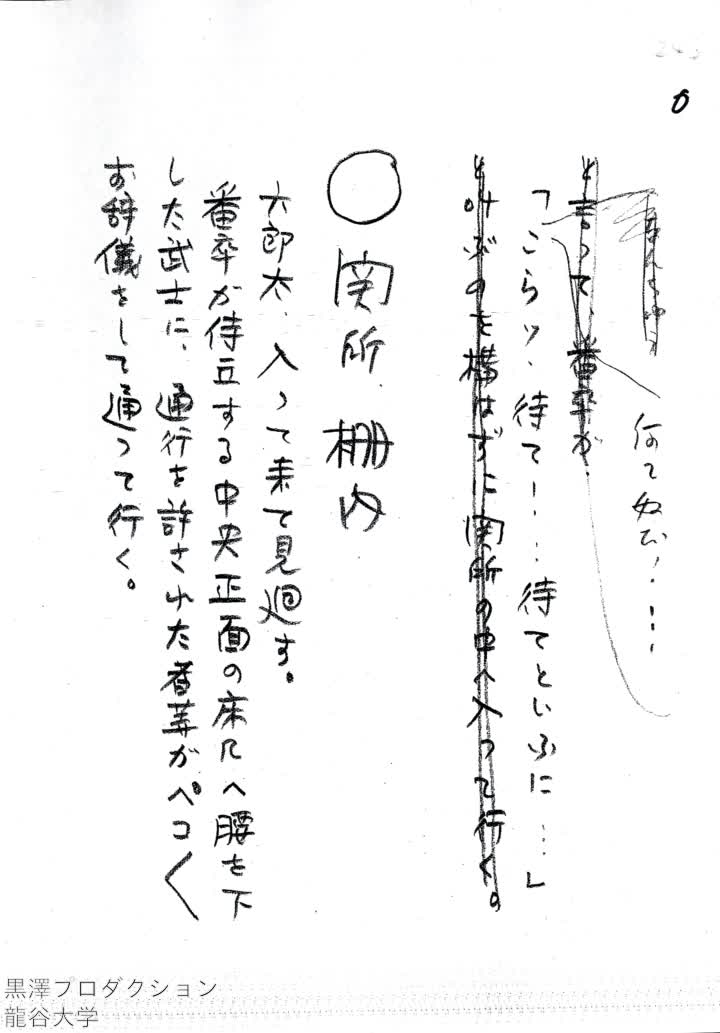 0
何て奴だ!……
と言って、番卒が、
「こらッ、待て!……待てといふに……」
と叫ぶのを構はずに関所の中へ入って行く。
○関所・柵内
六郎太、入って来て見廻す。
番卒が侍立する中央正面の床几へ腰を下
した武士に、通行を許された者等がペコ〱
お辞儀をして通って行く。
黒澤プロダクション
龍谷大学